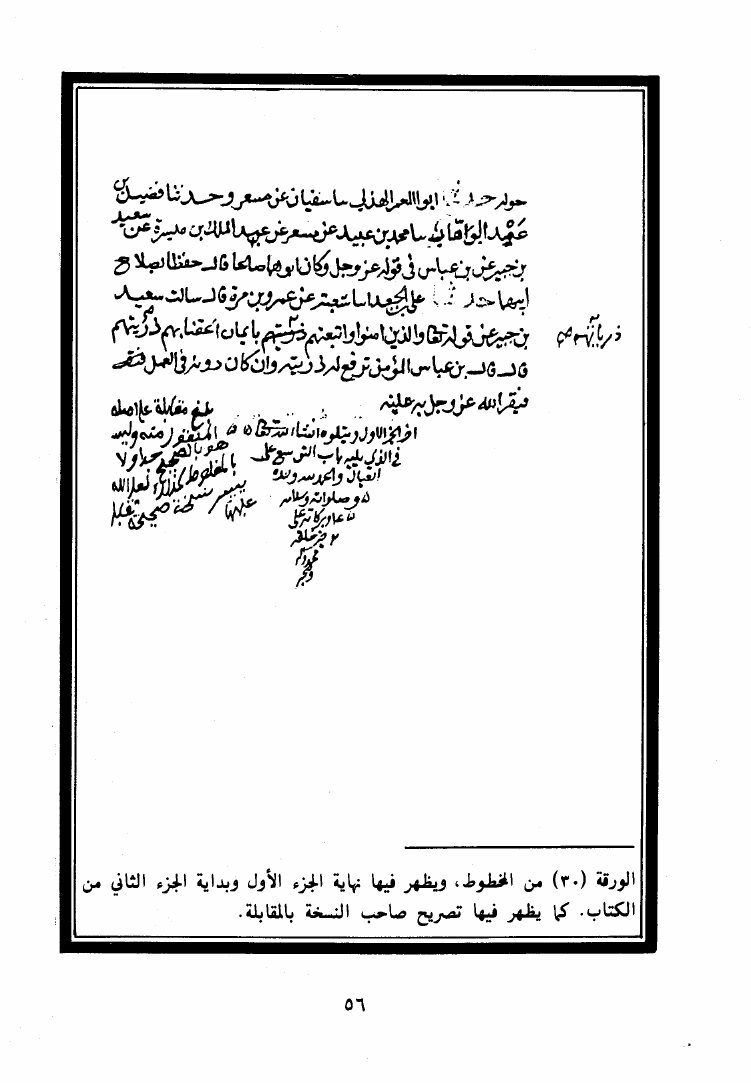 حوله حدثنا ابو المعمر الهذلي سا سفيان عن مسعر وحدثنا فضيل بن
عبد الوهاب سا محمد بن عبيد عن مسعر عن عبد الملك بن ميسرة عن سعيد
بن جبير عن بن عباس في قوله عز وجل وكان ابوهما صالحا قال حفظا بصلاح
ابيهما حدثنا علي بن الجعد اسا شعبة عن عمرو بن مرة قال سالت سعيد
بن جبير عن قوله تعالى والذين امنوا واتبعتهم ذريتهم بايمان الحقنا بهم ذريتهم
ذرياتهم ص
قال قال بن عباس المؤمن ترفع له ذريته وان كان دونه في العمل
فيقر الله عز وجل به عينه
اخر الجزء الاول ويتلوه انشاء الله تعالى
في الذي يليه باب السعي على
العيال والحمد لله وحده
وصلواته وسلامه
وبركاته على
خير خلقه
محمد واله
بلغ مقابلة على اصله
المنقول منه وليس
هو بالصحيح جدا ولا
بالمغلوط كذلك فعل الله
ييسر نسخة صحيحة تقابل
عليها
الورقة (٣٠) من المخطوط، ويظهر فيها نهاية الجزء الأول وبداية الجزء الثاني من
الكتاب. كما يظهر فيها تصريح صاحب النسخة بالمقابلة.
٥٦